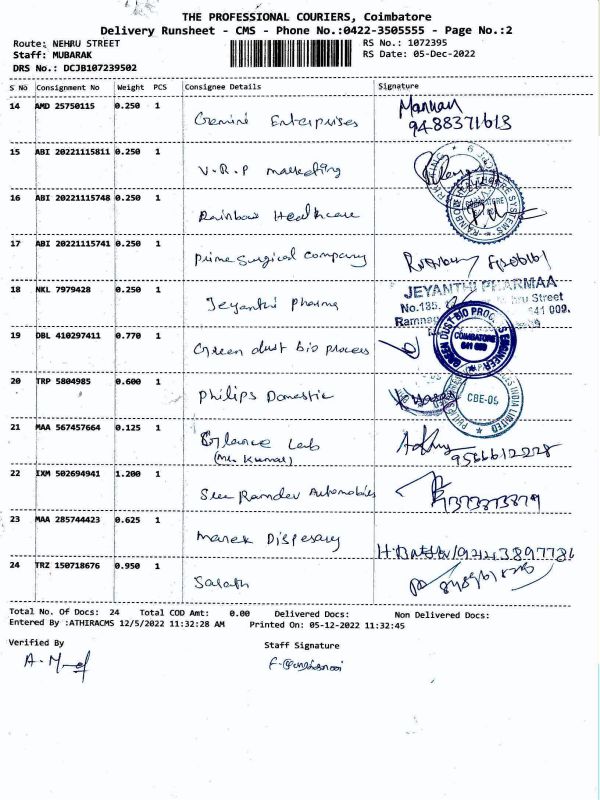 THE PROFESSIONAL COURIERS, Coimbatore
Delivery Runsheet - CMS - Phone No.:0422-3505555 - Page No.:2
Route: NEHRU STREET
RS No.: 1072395
Staff: MUBARAK
RS Date: 05-Dec-2022
DRS No.: DCJB107239502
S No Consignment No Weight PCS Consignee Details Signature
14 AMD 25750115 0.250 1 Gemini Enterprises Mannan
9488371613
15 ABI 20221115811 0.250 1 V.R.P marketing
16 ABI 20221115748 0.250 1 Rainbow Healthcare
RAINBOW HEALTHCARE SYSTEMS
17 ABI 20221115741 0.250 1 prime surgical company
18 NKL 7979428 0.250 1 Jeyanthi pharma
JEYANTHI PHARMAA
No.135, Nehru Street
Ramnagar 641 009.
19 DBL 410297411 0.770 1 Green dust bio process
GREEN DUST BIO PROCESS ENGINEER
COIMBATORE
641 009
20 TRP 5804985 0.600 1 philips Domestic
PHILIPS INDIA LIMITED
CBE-05
21 MAA 567457664 0.125 1 Glance Lab
(Mr. Kumar)
9566612228
22 IXM 502694941 1.200 1 Sree Ramdev Automobiles 7373773879
23 MAA 285744423 0.625 1 Manek Dispesary
24 TRZ 150718676 0.950 1 Sarath
Total No. Of Docs: 24 Total COD Amt: 0.00 Delivered Docs: Non Delivered Docs:
Entered By :ATHIRACMS 12/5/2022 11:32:28 AM Printed On: 05-12-2022 11:32:45
Verified By Staff Signature